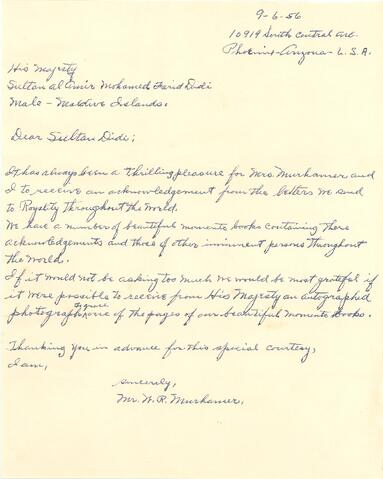 9-6-56
10919 South Central Ave.
Phoenix-Arizona-U.S.A.
His Majesty
Sultan al Amir Mohamed Farid Didi
Male - Maldive Islands.
Dear Sultan Didi;
It has always been a thrilling pleasure for Mrs. Murhamer and
I to receive an acknowledgement from the letters we send
to Royalty throughout the World.
We have a number of beautiful momento books containing these
acknowledgements and those of other imminent persons throughout
the World.
If it would not be asking too much we would be most grateful if
it were possible to receive from His Majesty an autographed
photograph, to grace one of the pages of our beautiful Momento Books.
Thanking you in advance for this special courtesy,
I am,
Sincerely,
Mr. W. R. Murhamer.